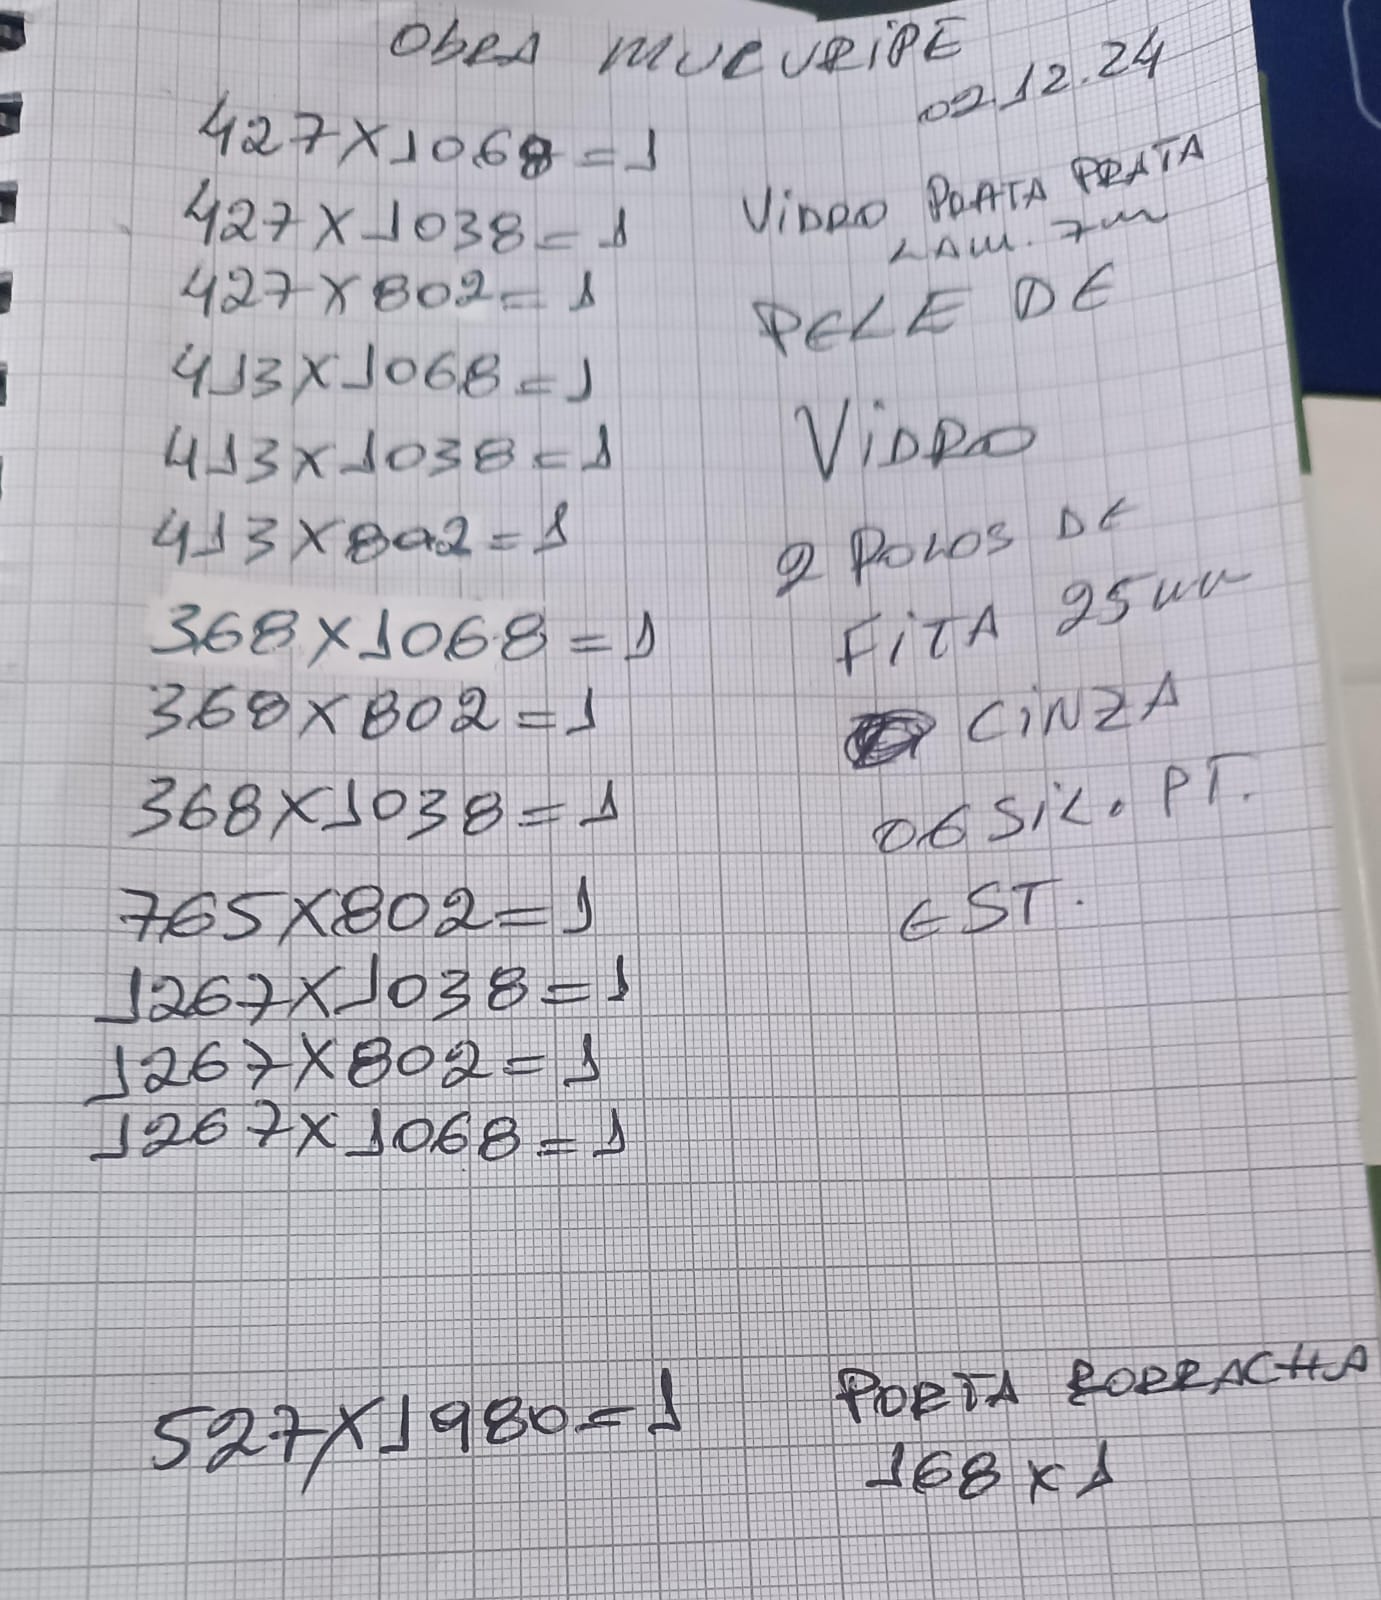 Obra MUCURIPE
02.12.24
427X1068=1
427X1038=1
427X802=1
413X1068=1
413X1038=1
413X802=1
368X1068=1
368X802=1
368X1038=1
765X802=1
1267X1038=1
1267X802=1
1267X1068=1
VIDRO PRATA PRATA
LAM. 7m
PELE DE
VIDRO
2 ROLOS DE
FITA 25mm
CINZA
06 SIL. PT.
EST.
527X1980=1
PORTA BORRACHA
168 x 1